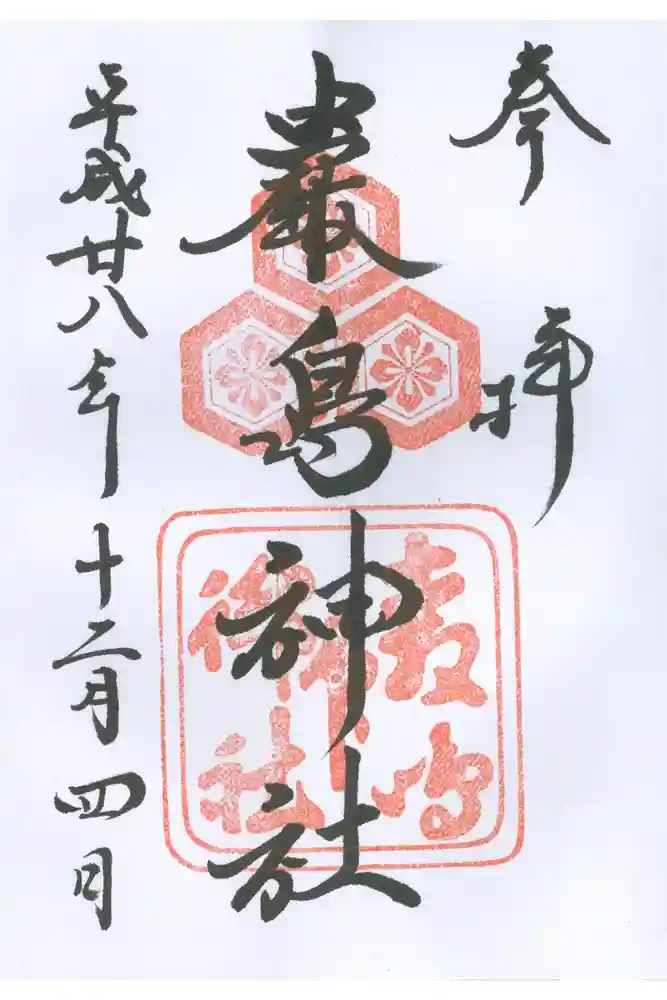 奉拝
嚴島神社
平成廿八年十二月四日